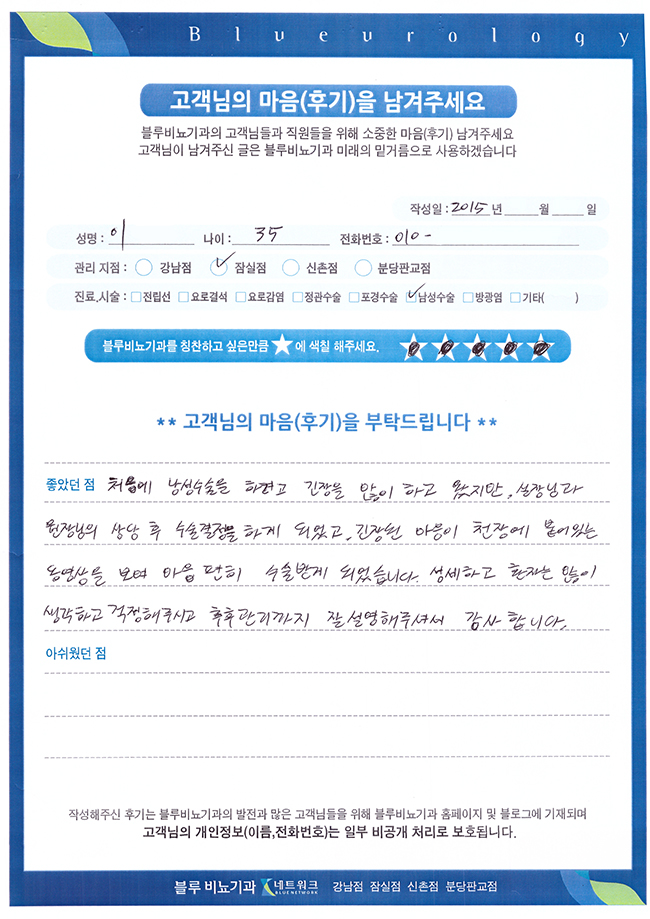 Blueurology
고객님의 마음(후기)을 남겨주세요
블루비뇨기과의 고객님들과 직원들을 위해 소중한 마음(후기) 남겨주세요
고객님이 남겨주신 글은 블루비뇨기과 미래의 밑거름으로 사용하겠습니다
작성일 : 2015 년 월 일
성명 : 이 나이 : 35 전화번호 : 010 -
관리 지점 : 강남점 잠실점 신촌점 분당판교점
진료,시술 : 전립선 요로결석 요로감염 정관수술 포경수술 남성수술 방광염 기타( )
블루비뇨기과를 칭찬하고 싶은만큼 ★에 색칠 해주세요.
** 고객님의 마음(후기)을 부탁드립니다 **
좋았던 점 처음에 남성수술을 하려고 긴장을 많이 하고 왔지만, 실장님과
원장님의 상담 후 수술결정을 하게 되었고, 긴장된 마음이 천장에 붙어있는
동영상을 보며 마음 편히 수술받게 되었습니다. 섬세하고 환자는 많이
생각하고 걱정해주시고 추후관리까지 잘 설명해주셔서 감사합니다.
아쉬웠던 점
작성해주신 후기는 블루비뇨기과의 발전과 많은 고객님들을 위해 블루비뇨기과 홈페이지 및 블로그에 기재되며
고객님의 개인정보(이름,전화번호)는 일부 비공개 처리로 보호됩니다.
블루 비뇨기과 네트워크 BLUENETWORK 강남점 잠실점 신촌점 분당판교점